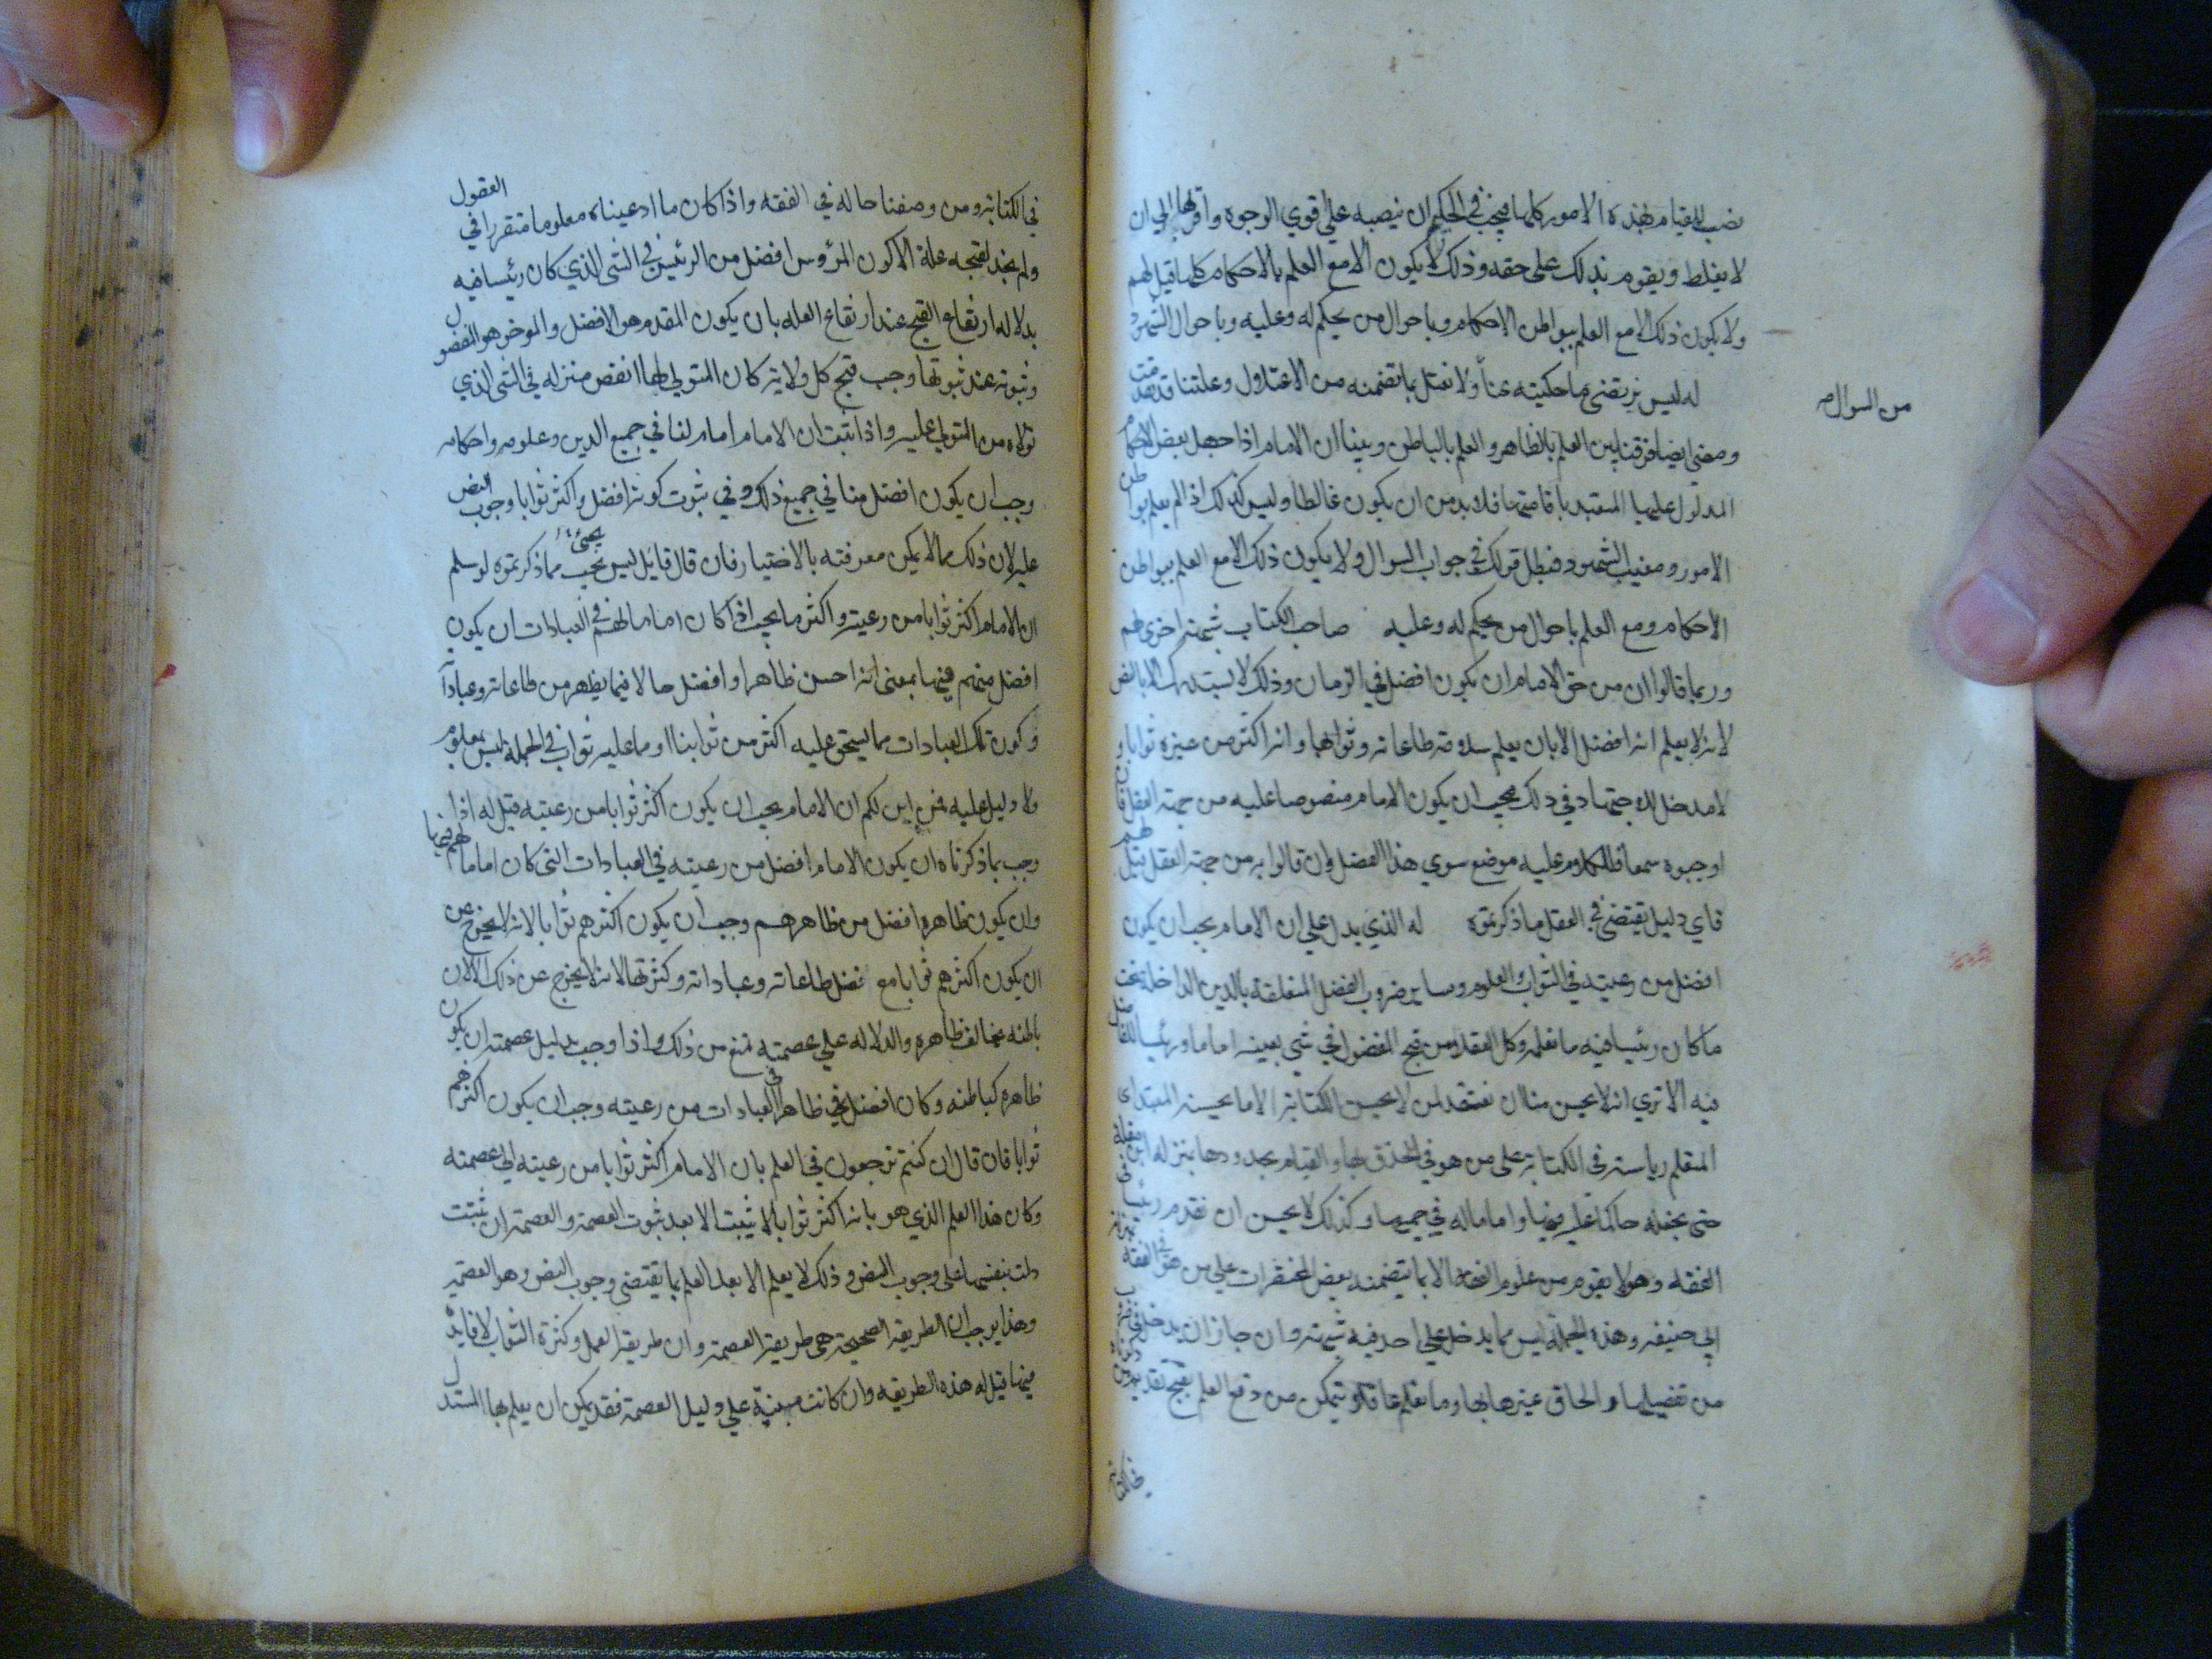 نصب للقيام بهذه الامور كلها فيجب في الحكيم ان ينصبه علي قوي الوجوه واقربها الي ان
لا يغلط ويقوم بذلك على حقه وذلك لا يكون الا مع العلم بالاحكام كلها قيل لهم
ولا يكون ذلك الا مع العلم ببواطن الاحكام وباحوال من يحكم له وعليه وباحوال الشهود
له ليس نرتضي ما حكيته عنا ولا نعتل بما تضمنه من الاعتلال وعلتنا قد تقدمت
من السوال
ومضي ايضا فرقنا بين العلم بالظاهر والعلم بالباطن وبينا ان الامام اذا جهل بعض الاحكام
المدلول عليها المتعبد باقامتها فلا بد من ان يكون غالطا وليس كذلك اذا لم يعلم بواطن
الامور ومغيب الشهود فبطل قولك في جواب السوال ولا يكون ذلك الا مع العلم ببواطن
الاحكام ومع العلم باحوال من يحكم له وعليه صاحب الكتاب شبهة اخري لهم
وربما قالوا ان من حق الامام ان يكون افضل في الزمان وذلك لا يستدرك الا بالنص
لانه لا يعلم انه افضل الا بان يعلم سلامة طاعاته وثوابها وانه اكثر من غيره ثوابا و
لا مدخل للاجتهاد في ذلك فيجب ان يكون الامام منصوصا عليه من جهة العقل فان
اوجبوه سمعا فللكلام عليه موضع سوي هذا الفصل وان قالوا به من جهة العقل قيل لهم
فاي دليل يقتضي في العقل ما ذكرتموه له الذي يدل علي ان الامام يجب ان يكون
افضل من رعيته في الثواب والعلوم وساير ضروب الفضل المتعلقة بالدين الداخلة تحت
ما كان رئيسا فيه ما نعلمه وكل العقلاء من قبح المفضول في شي بعينه اماما ورئيسا للفاضل
فيه الا تري انه لا يحسن منا ان نعقد لمن لا يحسن الكتابة الا ما يحسنه المبتدي
المتعلم رياسة في الكتابة على من هو في الحذق بها والقيام بحدودها بمنزلة ابن مقلة
حتى نجعله حاكما عليه فيها واماما له في جميعها وكذلك لا يحسن ان نقدم رئيسا في
الفقه وهو لا يقوم من علوم الفقه الا بما يتضمنه بعض المختصرات علي من هو في الفقه
ابي حنيفه وهذه الجملة ليس مما يدخل علي احد فيه شبهة وان جاز ان يدخل
من تفصيلها والحاق غيرها بها وما نعلم عاقلا يتمكن من دفع العلم بقبح تقديم من ذكرناه
في الكتابة
في الكتابة ومن وصفنا حاله في الفقه واذا كان ما ادعيناه معلوما متقررا في العقول
ولم نجد لقبحه علة الا كون المرؤس افضل من الرئيس في الشي الذي كان رئيسا فيه
بدلاله ارتفاع القبح عند ارتفاع العله بان يكون المقدم هو الافضل والموخر هو المفضول
وثبوته عند ثبوتها وجب قبح كل ولاية كان المتولي لها انقص منزله في الشي الذي
تولاه من المتولي عليه واذا ثبت ان الامام امام لنا في جميع الدين وعلومه واحكامه
وجب ان يكون افضل منا في جميع ذلك وفي ثبوت كونه افضل واكثر ثوابا وجوب النص
عليه لان ذلك مما لا يمكن معرفته بالاختيار فان قال قايل ليس يجب مما ذكرتموه لو سلم
ان الامام اكثر ثوابا من رعيته واكثر ما يجب اذا كان اماما لهم في العبادات ان يكون
افضل منهم فيها بمعنى انه احسن ظاهرا وافضل حالا فيما يظهر من طاعاته وعباداته
وكون تلك العبادات مما يستحق عليه اكثر من ثوابنا او مما عليه ثواب في الجملة ليس بمعلوم
ولا دليل عليه فمن اين لكم ان الامام يجب ان يكون اكثر ثوابا من رعيته قيل له اذا
وجب بما ذكرناه ان يكون الامام افضل من رعيته في العبادات التي كان اماما لهم فيها
وان يكون ظاهره افضل من ظاهرهم وجب ان يكون اكثرهم ثوابا لانه لا يخرج عن
ان يكون اكثرهم ثوابا مع فضل طاعاته وعباداته وكثرتها لانه لا يخرج عن ذلك الا لان
باطنه يخالف ظاهره والدلاله علي عصمته تمنع من ذلك واذا وجب بدليل عصمته ان يكون
ظاهره كباطنه وكان افضل في ظاهر العبادات من رعيته وجب ان يكون اكثرهم
ثوابا فان قال ان كنتم ترجعون في العلم بان الامام اكثر ثوابا من رعيته الي عصمته
وكان هذا العلم الذي هو بانه اكثر ثوابا لا يثبت الا بعد ثبوت العصمة والعصمة ان ثبتت
دلت بنفسها على وجوب النص وذلك لا يعلم الا بعد العلم بما يقتضي وجوب النص وهو العصمة
وهذا يوجب ان الطريقة الصحيحة هي طريقة العصمة وان طريقة الفضل وكثرة الثواب لا فايدة
فيها قيل له هذه الطريقه وان كانت مبنية علي دليل العصمة فقد يمكن ان يعلم بها المستدل